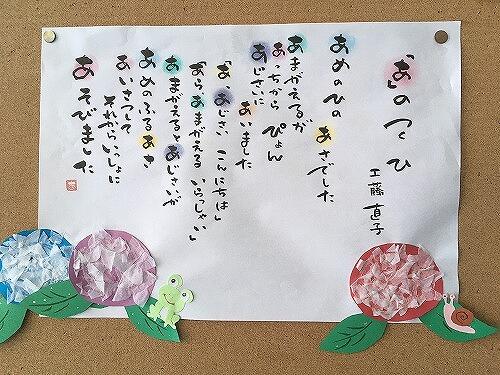 「あ」のつくひ
工藤直子
あめのひの あさでした
あまがえるが
あっちから ぴょん
あじさいに
あいました
「あ、あじさい こんにちは」
「あら、あまがえる いらっしゃい」
あまがえると あじさいが
あめのふる あさ
あいさつして
それからいっしょに
あそびました